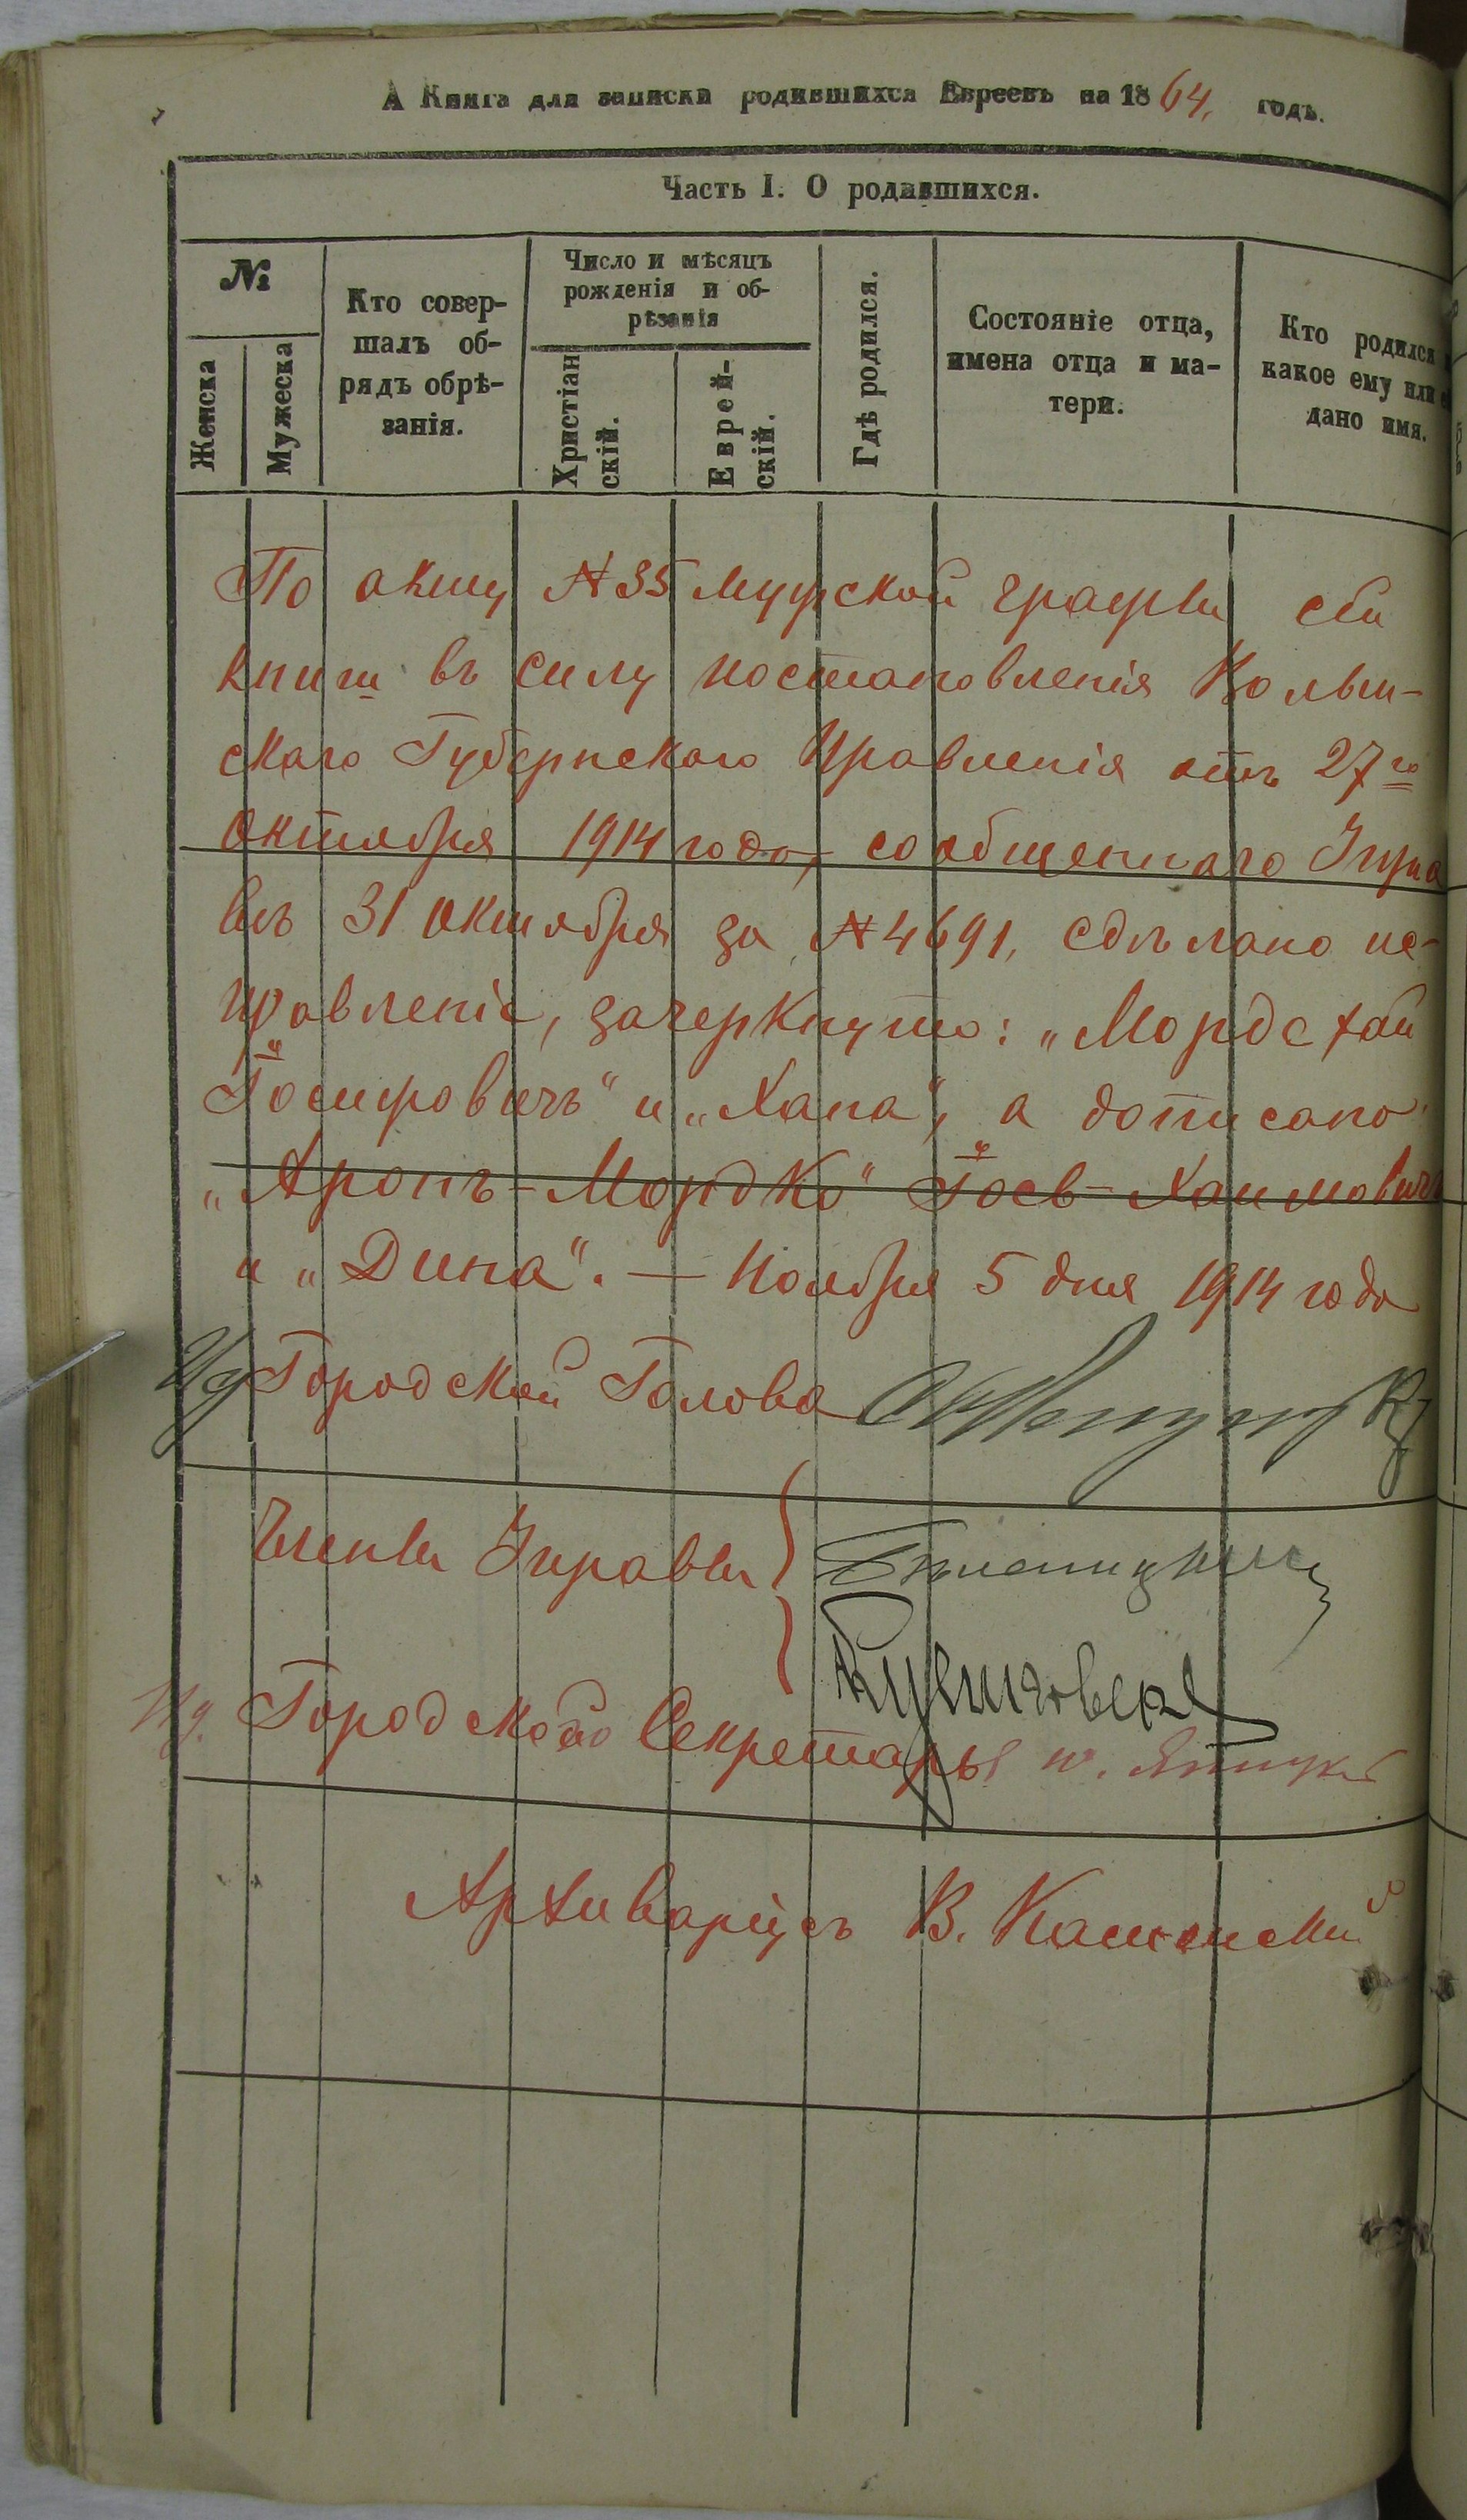 А Книга для записки родившихся Евреевъ на 1864. годъ.
Часть I. О родившихся.
№
Женска
Мужеска
Кто совер-
шалъ об-
рядъ обрѣ-
занія.
Число и мѣсяцъ
рожденія и об-
рѣзанія
Христіан
скій.
Еврей-
скій.
Гдѣ родился.
Состояніе отца,
имена отца и ма-
тери.
Кто родился
какое ему или
дано имя.
По акту №35 мужской графы сей
книги въ силу постановленія Волын-
скаго Губернскаго Правленія отъ 27го
октября 1914 года, сообщеннаго Упра
вѣ 31 октября за №4691, сдѣлано ис-
правленіе, зачеркнуто: „Мордехай
Іосифовичъ" и „Хана", а дописано
„Аронъ-Мордко" Іосъ-Хаимовичъ
и „Дина". — Ноября 5 дня 1914 года
Ид Городской Голова
Члены Управы
Ид. Городского Секретаря
Архиваріусъ В. Каменскій